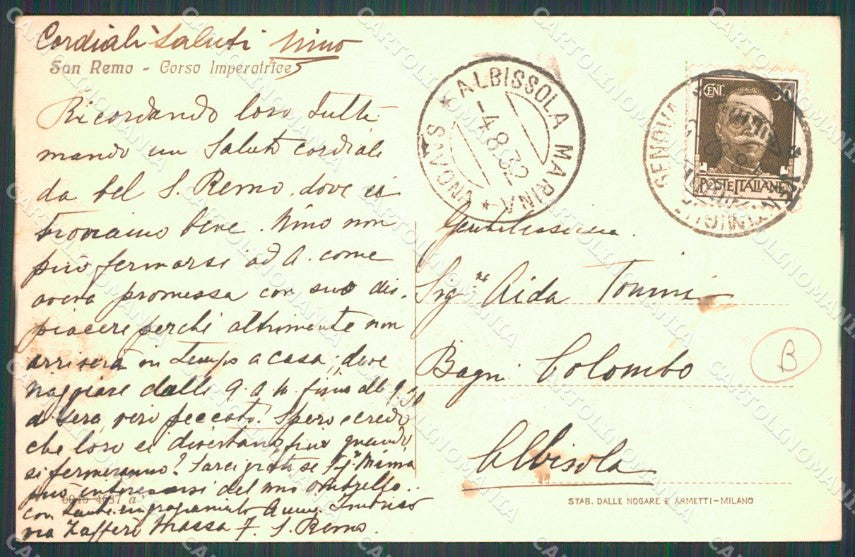 Cordiali Saluti Nino
San Remo - Corso Imperatrice
Ricordando loro tutti
mando un saluto cordiale
da bel S. Remo dove ci
troviamo bene. Nino non
può fermarsi ad A. come
aveva promesso con suo dis-
piacere perchè altrimenti non
arriverà in tempo a casa, deve
viaggiare dalle 9 a m. fino alle 9,30
di sera vero peccato. Spero e credo
che loro si divertano, fino quando
si fermeranno?
può interessarsi del mio ombrello.
con tanti
via Zeffero Massa 7. S. Remo.
ALBISSOLA MARINA
-4.8.32
SAVONA
GENOVA
CENT. 30
POSTE ITALIANE
Gentilissima
Sig.na Aida Tonini
Bagni Colombo
Albisola
B
STAB. DALLE NOGARE E ARMETTI-MILANO
CARTOLINOMANIA